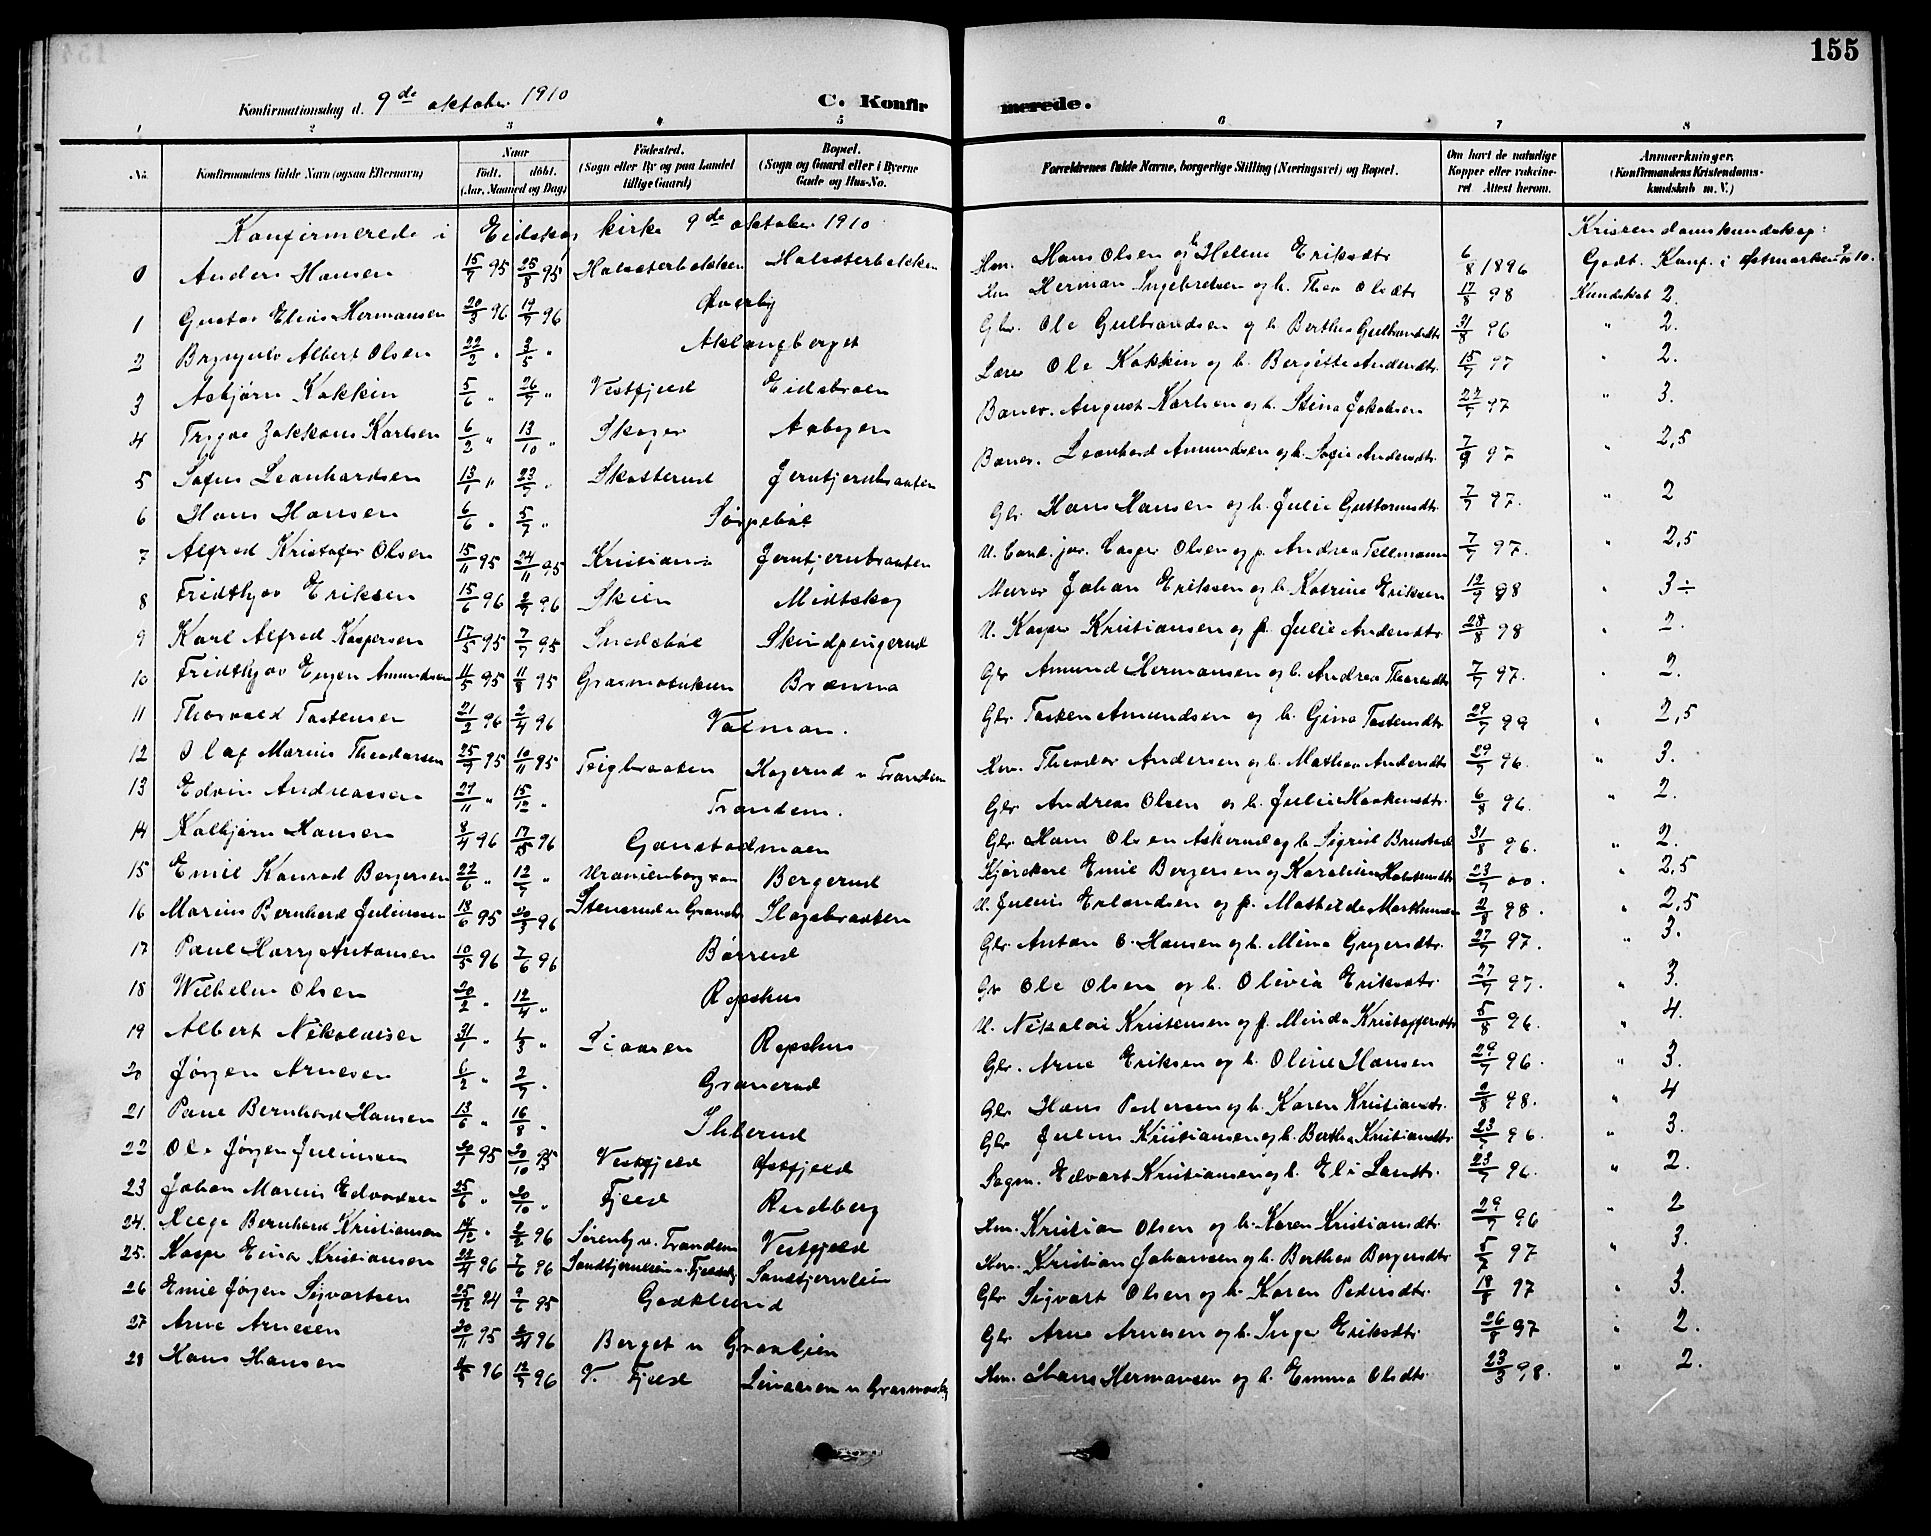 155
Konfirmationsdag d. 9de oktober 1910 C. Konfirmerede.
1 2 3 4 5 6 7 8
No. Konfirmandens fulde Navn (ogsaa Efternavn) Naar födt. döbt. (Aar, Maaned og Dag) Födested. (Sogn eller By og paa Landet tillige Gaard) Bopæl. (Sogn og Gaard eller i Byerne Gade og Hus-No. Forældrenes fulde Navne, borgerlige Stilling (Næringsvei) og Bopæl. Om havt de naturlige Kopper eller vakcineret Attest herom. Anmærkninger. (Konfirmandens Kristendomskundskab m. V.)
Konfirmerede i Eidskog kirke 9de oktober 1910 Kristendomskundskap:
0 Anders Hansen 15/7 95 25/8 95 Halsæterbakken Halsæterbakken Km. Hans Olsen og h Helene Eriksdtr 6/8 1896 Godt. Konf. i Østmarken
1 Gustav Elias Hermansen 20/3 96 19/7 96 Øverby Km Herman Ingebretsen og h. Thea Olsdtr 17/8 98 Kundskab 2.
2 Brynjulv Albert Olsen 22/2 " 3/5 " Aklangberget Gbr. Ole Gulbrandsen og h Berthea Gulbrandsdtr 31/8 96 " 2.
3 Asbjørn Kokkin 5/6 " 26/7 " Vestfjeld Eidsbraaten Lærer Ole Kokkin og h. Bergitte Andersdtr. 15/7 97 " 2.
4 Trygve Zakkæus Karlsen 6/2 " 13/10 " Skoger Aabogen Banev. August Karlsen og h. Stina Jakobsen 27/7 97 " 3.
5 Sofus Leonhardsen 13/1 " 23/7 " Skotterud Jerntjernbraaten Banev. Leonhard Amundsen og h. Sofie Andersdtr. 7/9 97 " 2,5
6 Hans Hansen 6/6 " 5/7 " Sørpebøl Gbr. Hans Hansen og h. Julie Guttormsdtr 7/7 97. " 2
7 Alfred Kristofer Olsen 15/11 95 24/11 95 Kristiania Jerntjernbraaten U. Cand. jur. Casper Olsen og p. Andrea Tellmann 7/7 97. " 2,5
8 Fridthjov Eriksen 15/6 96 2/7 96 Skien Midtskog Murer Johan Eriksen og h. Katrine Eriksen 12/9 98 " 3÷
9 Karl Alfred Kaspersen 17/5 95 7/7 95 Snedsbøl Skindpengerud U. Kasper Kristiansen og p. Julie Andersdtr 28/8 98 " 2.
10 Fridthjov Eugen Amundsen 11/5 95 11/8 95 Græsmosaksen Brænna Gbr Amund Hermansen og h. Andrea Thoresdtr 7/7 97. " 2.
11 Thorvald Tostensen 21/2 96 2/4 96 Vatman. Gbr. Tosten Amundsen og h. Gina Tostensdtr 29/7 99 " 2,5
12 Olaf Marius Theodorsen 25/9 95 10/11 95 Teigbraaten Hagerud u Trandem Km. Theodor Andersen og h. Mathea Andersdtr 29/7 96. " 3.
13 Edvin Andreassen 27/11 " 15/12 " Trandem. Gbr Andreas Olsen og h. Julie Haakensdtr. 6/8 96. " 2.
14 Kolbjørn Hansen 8/4 96 17/5 96 Gaustadmoen Gbr Hans Olsen Askerud og h Sigrid Brustad 31/8 96. " 2.
15 Emil Konrad Bergersen 22/6 " 12/7 " Uranienborg Bergerud Kjørekarl Emil Bergersen og Karoline 23/7 00. " 2,5
16 Marius Bernhard Juliussen 13/6 95 20/3 96 Stenerud u Skogsbraaten U. Julius Erlandsen og p. Mathilde 2/8 98. " 2,5
17 Paul Harry Antonsen 10/5 96 7/6 96 Børrud Gbr Anton O. Hansen og h. Mina Gregersdtr. 27/7 97. " 3.
18 Wilhelm Olsen 20/2 " 12/4 " Repshus Gbr Ole Olsen og h. Olivia Eriksdtr. 27/7 97. " 3.
19 Albert Nikolaisen 31/1 " 1/3 " Liaasen Repshus U. Nikolai Kristensen og p. Minda Kristoffersdtr 5/8 96. " 4.
20 Jørgen Arnesen 6/2 " 2/7 " Granerud Gbr. Arne Eriksen og h. Oline Hansen 29/7 96. " 3.
21 Paul Bernhard Hansen 13/6 " 16/8 " Ihlerud Gbr Hans Pedersen og h. Karen Kristiansdtr. 2/8 98. " 4
22 Ole Jørgen Juliussen 20/7 95 20/10 95 Vestfjeld Østfjeld Gbr Julius Kristiansen og h. Berthea Kristiansdtr. 23/7 96. " 3.
23 Johan Marius Edvardsen 25/6 " 20/10 " Fjeld Rudberg Sagm. Edvart Kristiansen og h. Eli Larsdtr. 23/7 96. " 2.
24. Helge Bernhard Kristiansen 14/12 " 2/2 96 Sørenby u. Trandem Vestfjeld Km. Kristian Olsen og h. Karen Kristiansdtr 29/7 96 " 2
25. Kaspr Einar Kristiansen 24/4 96 7/6 96 Sandtjernlien u. Fjeldskog Sandtjernlien Km. Kristian Johansen og h. Berthea Bergersdtr 5/7 97 " 3.
26 Emil Jørgen Sigvartsen 25/12 94 9/6 95 Gaaklund Gbr Sigvart Olsen og h. Karen Pedersdtr. 18/8 97 " 3.
27 Arne Arnesen 20/11 95 2/4 96 Berget u Graaljen Gbr Arne Arnesen og h. Inger Eriksdtr 26/8 97 " 2.
28 Hans Hansen 4/5 96 12/7 96 V. Fjeld Linaasen u Græsmosky Km. Hans Hermansen og h. Emma Olsdtr. 23/3 98. " 2.